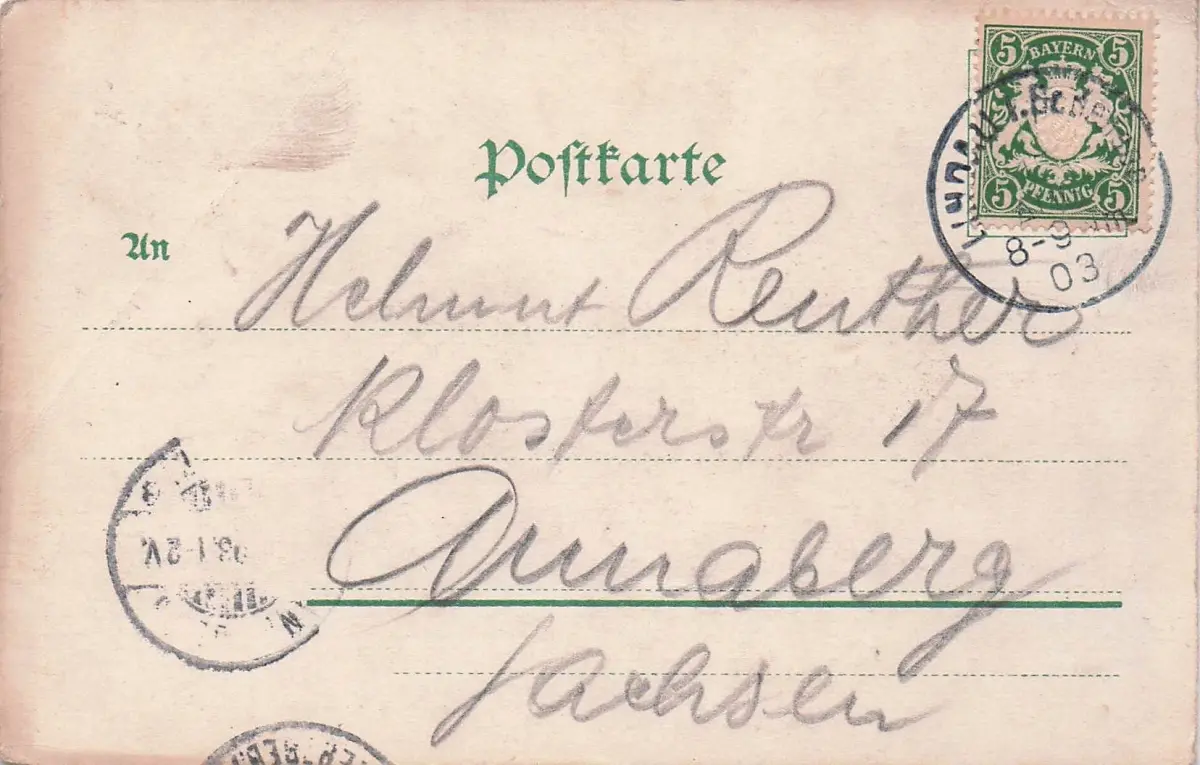 BAYERN
5 5
5 5
PFENNIG
8-9
03
Postkarte
An
Helmut Reuther
Klosterstr 17
Annaberg
Sachsen
1-2V.